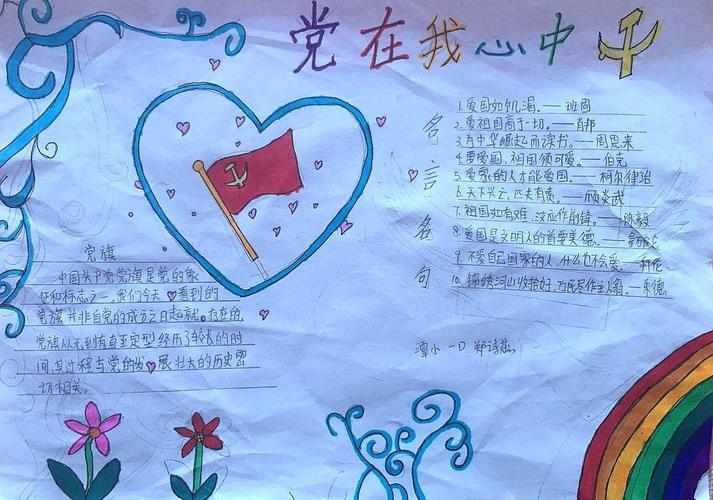 党在我心中
党旗
中国共产党党旗是党的象
征和标志之一。我们今天看到的
党旗并非自党的成立之日起就存在的,
党旗从无到有直至定型经历了较长的时
间其过程与党的发展壮大的历史密
切相关。
名言名句
1.爱国如饥渴。——班固
2.爱祖国高于一切。——肖邦
3.为中华崛起而读书。——周恩来
4.要爱国,祖国须可爱。——伯克
5.爱家的人才能爱国。——柯尔律治
6.天下兴亡,匹夫有责。——顾炎武
7.祖国如有难,汝应作前锋。——陈毅
8.爱国是文明人的首要美德。——
9.不爱自己国家的人什么也不会爱。——
10.锦绣河山收拾好,万民尽作主人翁。——朱德
潭小一